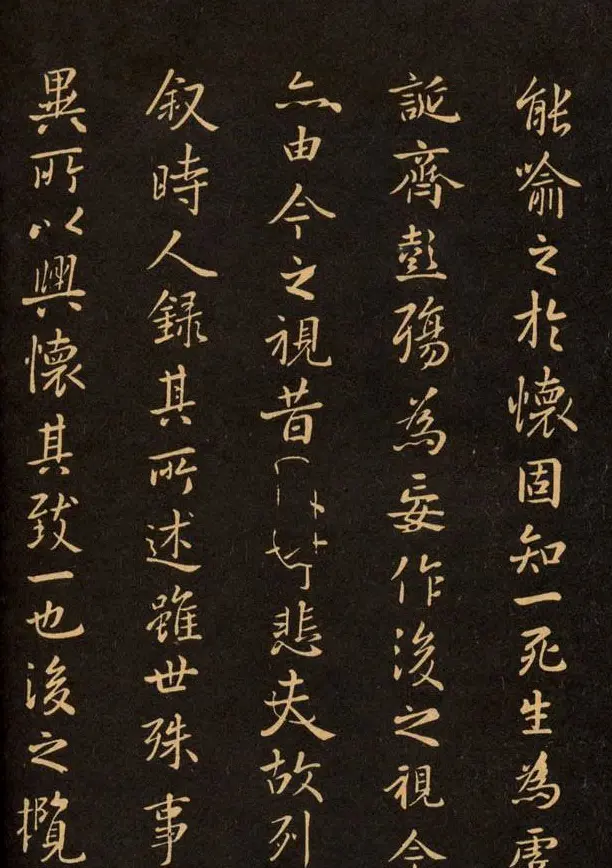 能喻之於懷固知一死生為虛
誕齊彭殤為妄作後之視今
亦由今之視昔悲夫故列
叙時人録其所述雖世殊事
異所以興懷其致一也後之攬